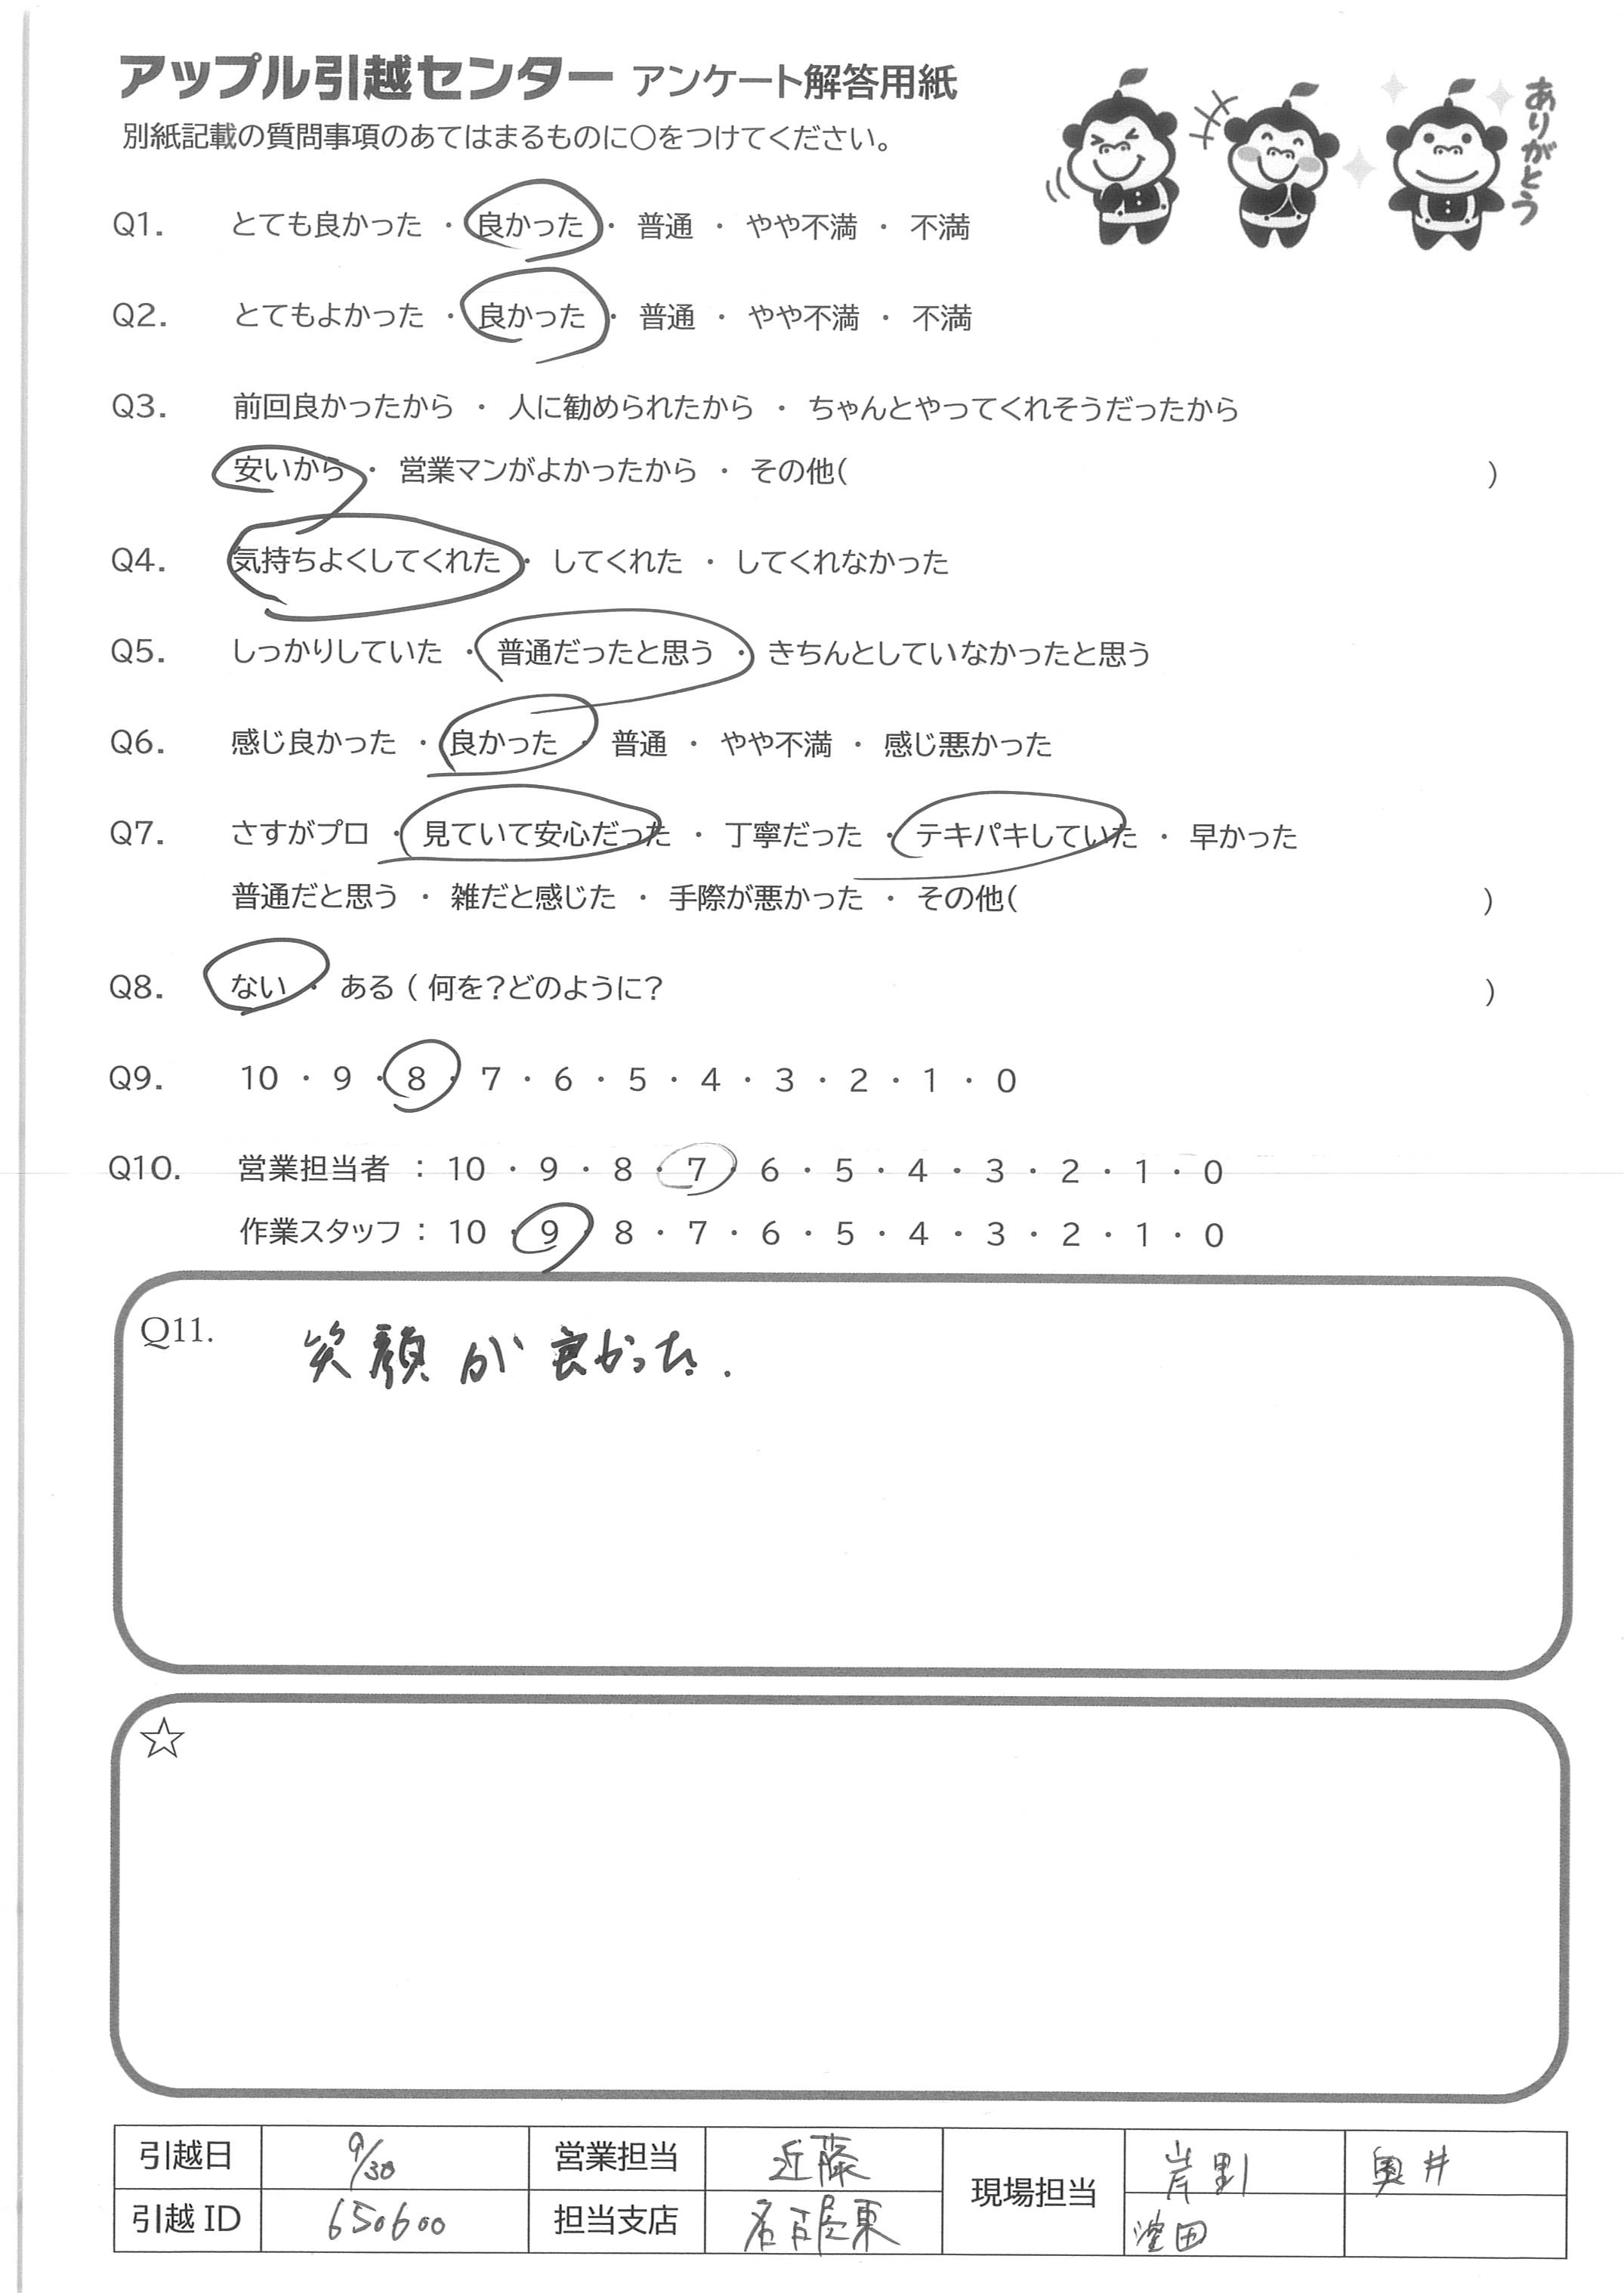 アップル引越センター アンケート解答用紙
別紙記載の質問事項のあてはまるものに〇をつけてください。
ありがとう
Q1. とても良かった ・ 良かった ・ 普通 ・ やや不満 ・ 不満
Q2. とてもよかった ・ 良かった ・ 普通 ・ やや不満 ・ 不満
Q3. 前回良かったから ・ 人に勧められたから ・ ちゃんとやってくれそうだったから
安いから ・ 営業マンがよかったから ・ その他( )
Q4. 気持ちよくしてくれた ・ してくれた ・ してくれなかった
Q5. しっかりしていた ・ 普通だったと思う ・ きちんとしていなかったと思う
Q6. 感じ良かった ・ 良かった ・ 普通 ・ やや不満 ・ 感じ悪かった
Q7. さすがプロ ・ 見ていて安心だった ・ 丁寧だった ・ テキパキしていた ・ 早かった
普通だと思う ・ 雑だと感じた ・ 手際が悪かった ・ その他( )
Q8. ない ・ ある ( 何を?どのように? )
Q9. 10 ・ 9 ・ 8 ・ 7 ・ 6 ・ 5 ・ 4 ・ 3 ・ 2 ・ 1 ・ 0
Q10. 営業担当者 : 10 ・ 9 ・ 8 ・ 7 ・ 6 ・ 5 ・ 4 ・ 3 ・ 2 ・ 1 ・ 0
作業スタッフ : 10 ・ 9 ・ 8 ・ 7 ・ 6 ・ 5 ・ 4 ・ 3 ・ 2 ・ 1 ・ 0
Q11. 笑顔が良かった.
☆
引越日 9/30 営業担当 近藤 現場担当 岸野 奥井
引越 ID 650600 担当支店 名古屋東